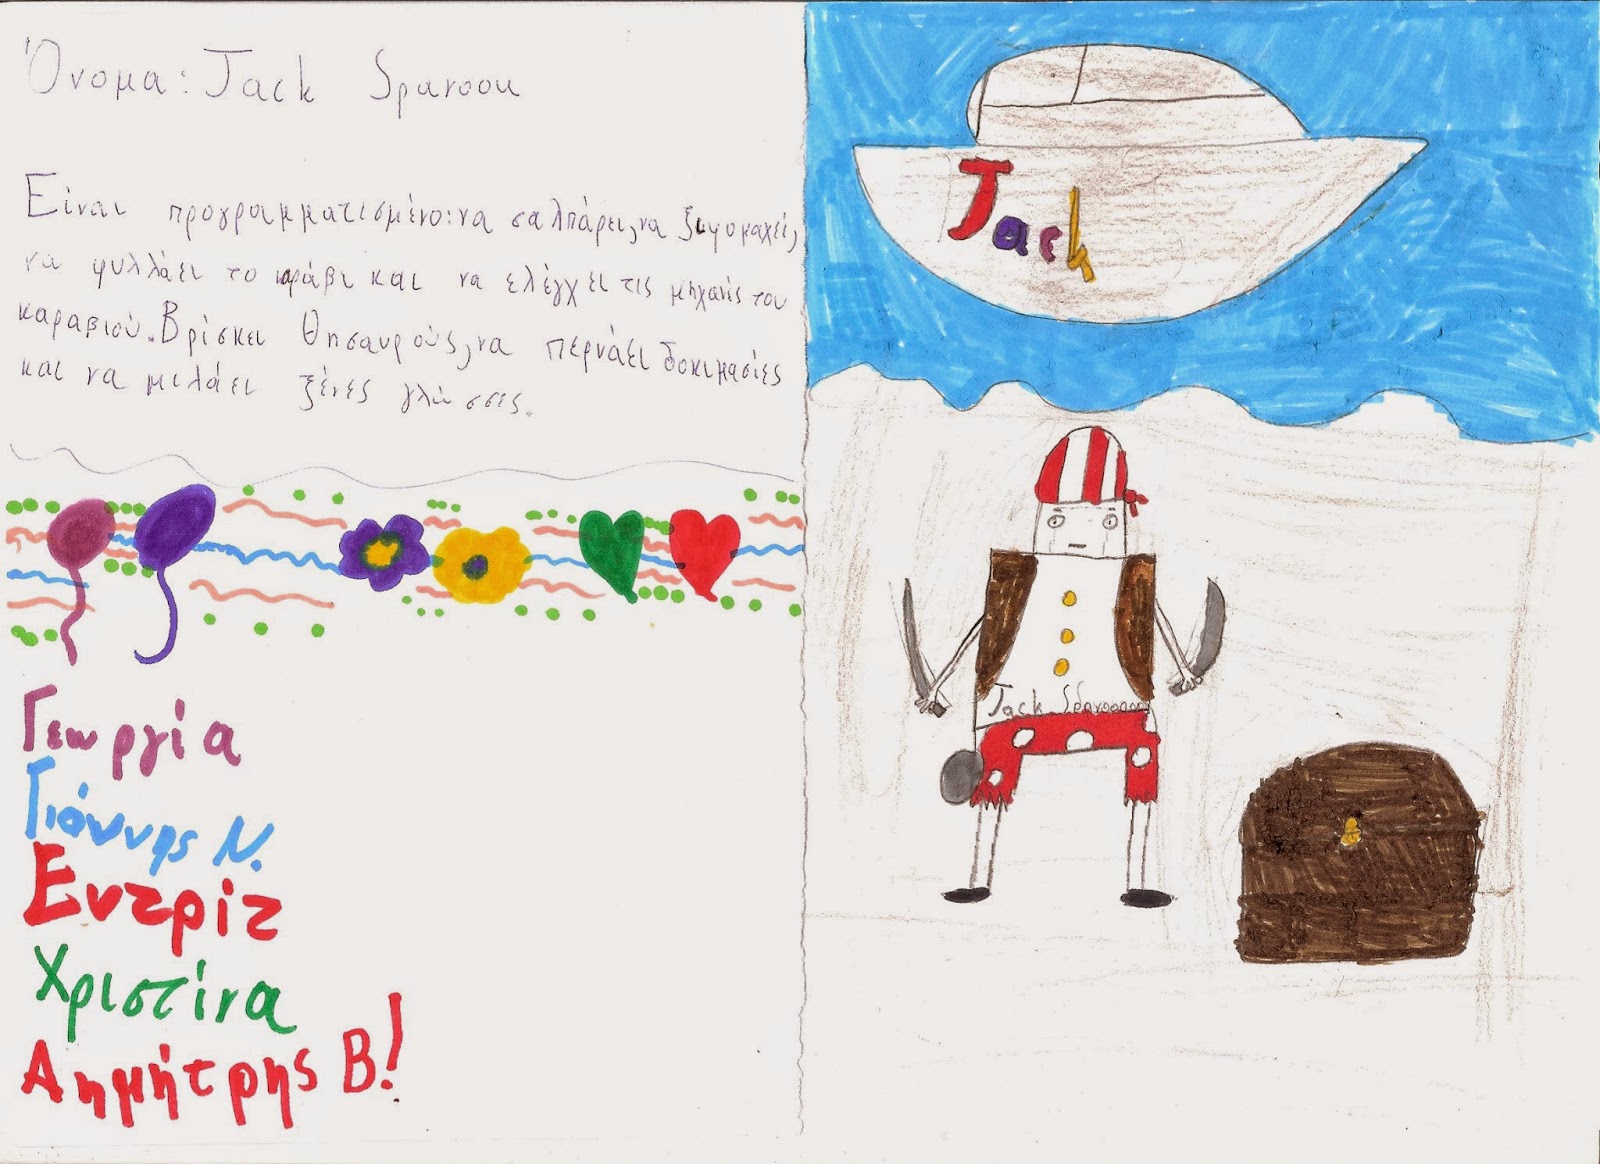 Όνομα: Jack Sparoou
Είναι προγραμματισμένο: να σαλπάρει, να ξιφομαχεί,
να φυλλάει το καράβι και να ελέγχει τις μηχανές του
καραβιού. Βρίσκει θησαυρούς, να περνάει δοκιμασίες
και να μιλάει ξένες γλώσσες.
Γεωργία
Γιάννης Ν.
Εντρίτ
Χριστίνα
Δημήτρης Β!
Jack
Jack